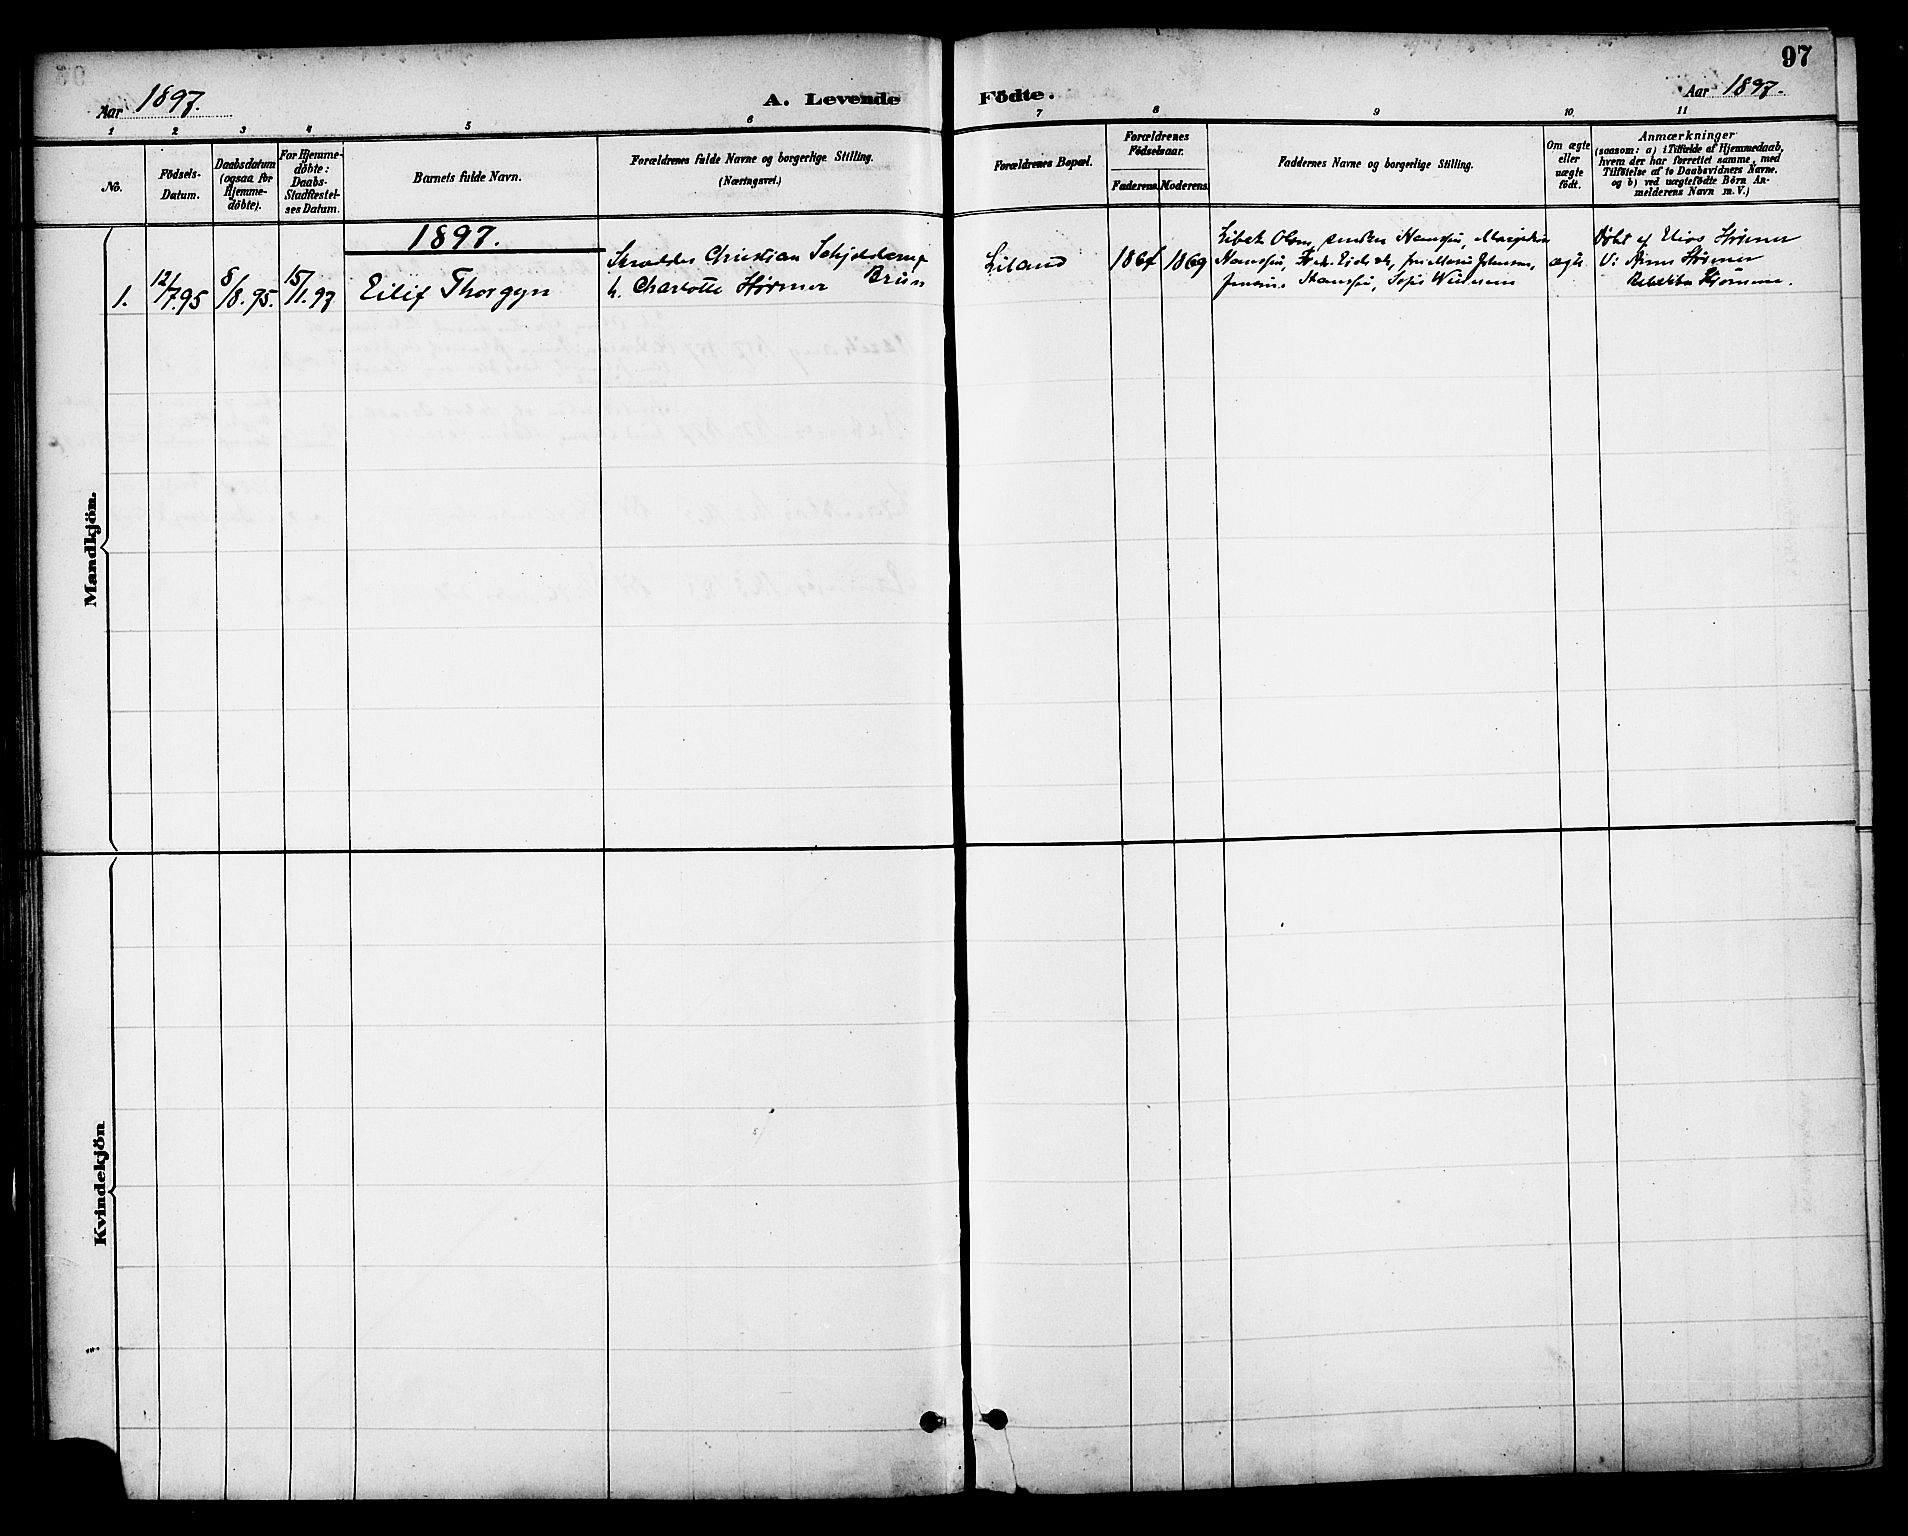 97
Aar 1897.
A. Levende Födte.
Aar 1897.
1 2 3 4 5 6 7 8 9 10 11
No.
Födsels-
Datum.
Daabsdatum
(ogsaa for
Hjemme-
döbte).
For Hjemme-
döbte:
Daabs-
Stadfæstel-
ses Datum.
Barnets fulde Navn.
Forældrenes fulde Navne og borgerlige Stilling.
(Næringsvei.)
Forældrenes Bopæl.
Forældrenes
Födselsaar.
Faderens. Moderens.
Faddernes Navne og borgerlige Stilling.
Om ægte
eller
uægte
födt.
Anmærkninger
(saasom: a) i Tilfælde af Hjemmedaab,
hvem der har forrettet samme, med
Tilföielse af to Daabsvidners Navne.
og b) ved uægtefödte Börn An-
melderens Navn m. V.)
Mandkjön.
1897.
1.
12/7.95
8/8.95.
15/1.97
Eilif Thorgyn
Christian Schjelderup
Brun
h. Charlotte Hørmer
Liland
1864
1869
Olsen, Hanssen,
Hanssen,
Hanssen,
ægte
Døbt af Elias Hørmer
V: Hørmer
Rebekka
Kvindekjön